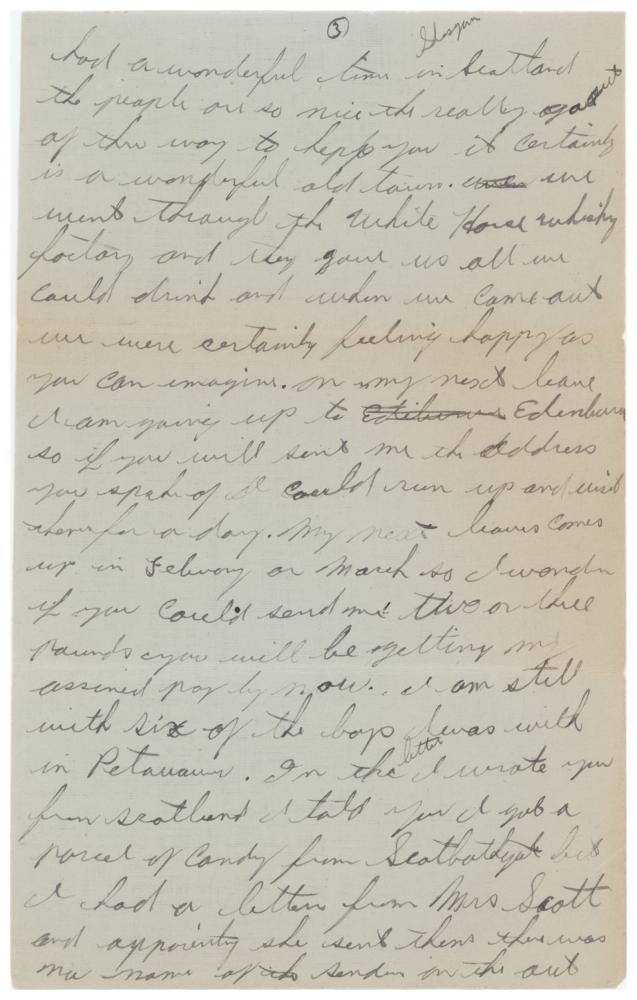 ③ Glasgow
had a wonderful time in Scotland
the people are so nice the really go out
of thre way to help you it certainly
is a wonderful old town. we
went through the White Horse whisky
factory and they gave us all we
could drink and when we came out
we were certainly feeling happy as
you can imagine. on my next leave
I am going up to Edenburu
so if you will sent me the address
you spoke of I could run up and visit
them for a day. My next leaves comes
up in Febuary or March so I wonder
if you could send me two or three
pounds you will be getting my
assined pay by now. I am still
with six of the boys I was with
in Petawawa. In the letter I wrote you
from Scotland I told you I got a
parcel of candy from but
I had a letter from Mrs Scott
and apparenty she sent them there was
no name of sender on the out